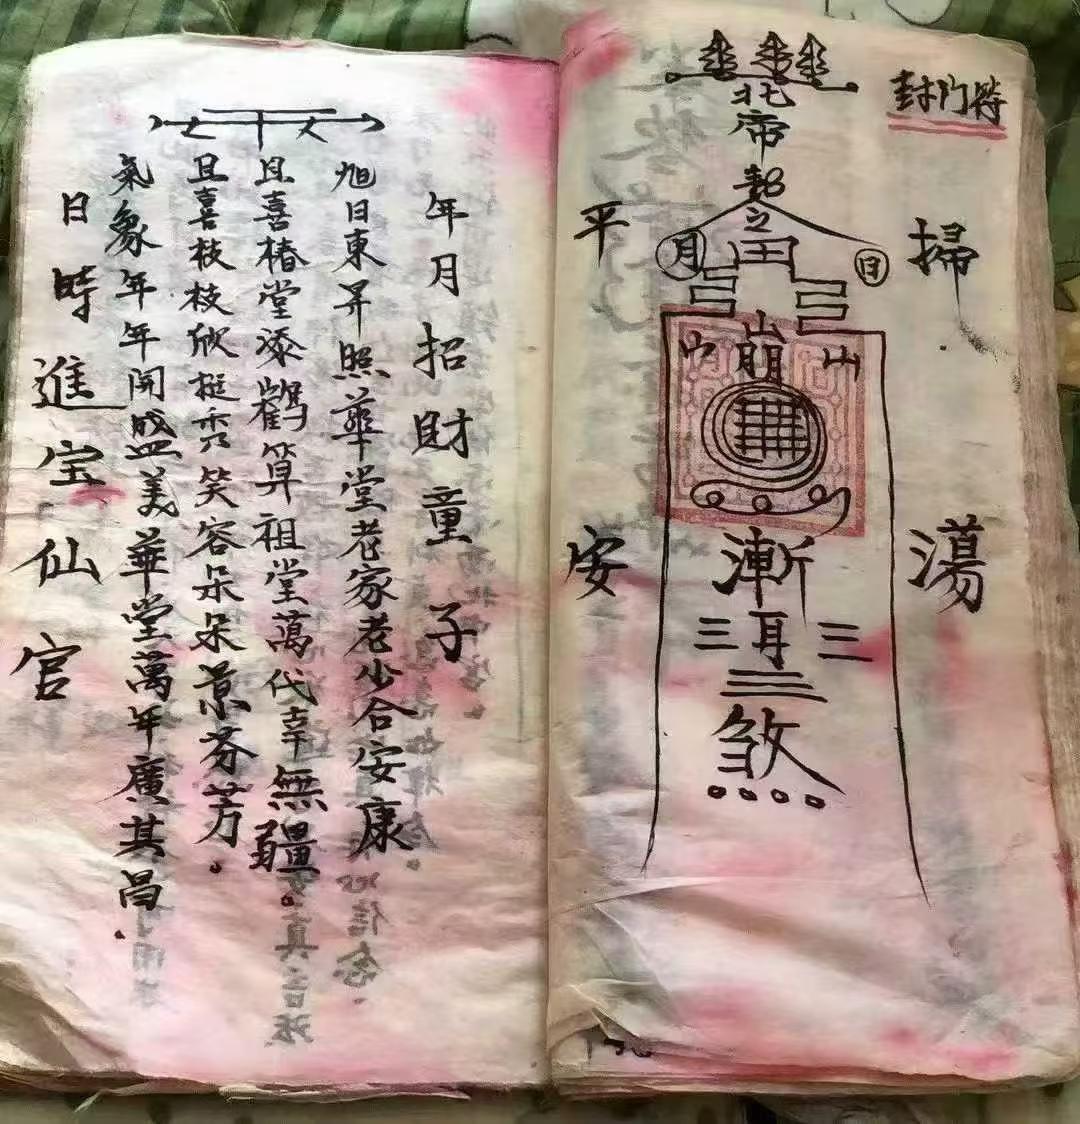 封門符
掃蕩
北帝
平安
月
日
山崩山
漸耳
煞
年月招財童子
旭日東昇照華堂老家老少合安康
且喜椿堂添鶴算祖堂萬代幸無疆。
且喜枝枝欣挺秀笑容朵朵景芬芳。
氣象年年開盛美華堂萬年廣其昌.
日時進宝仙官